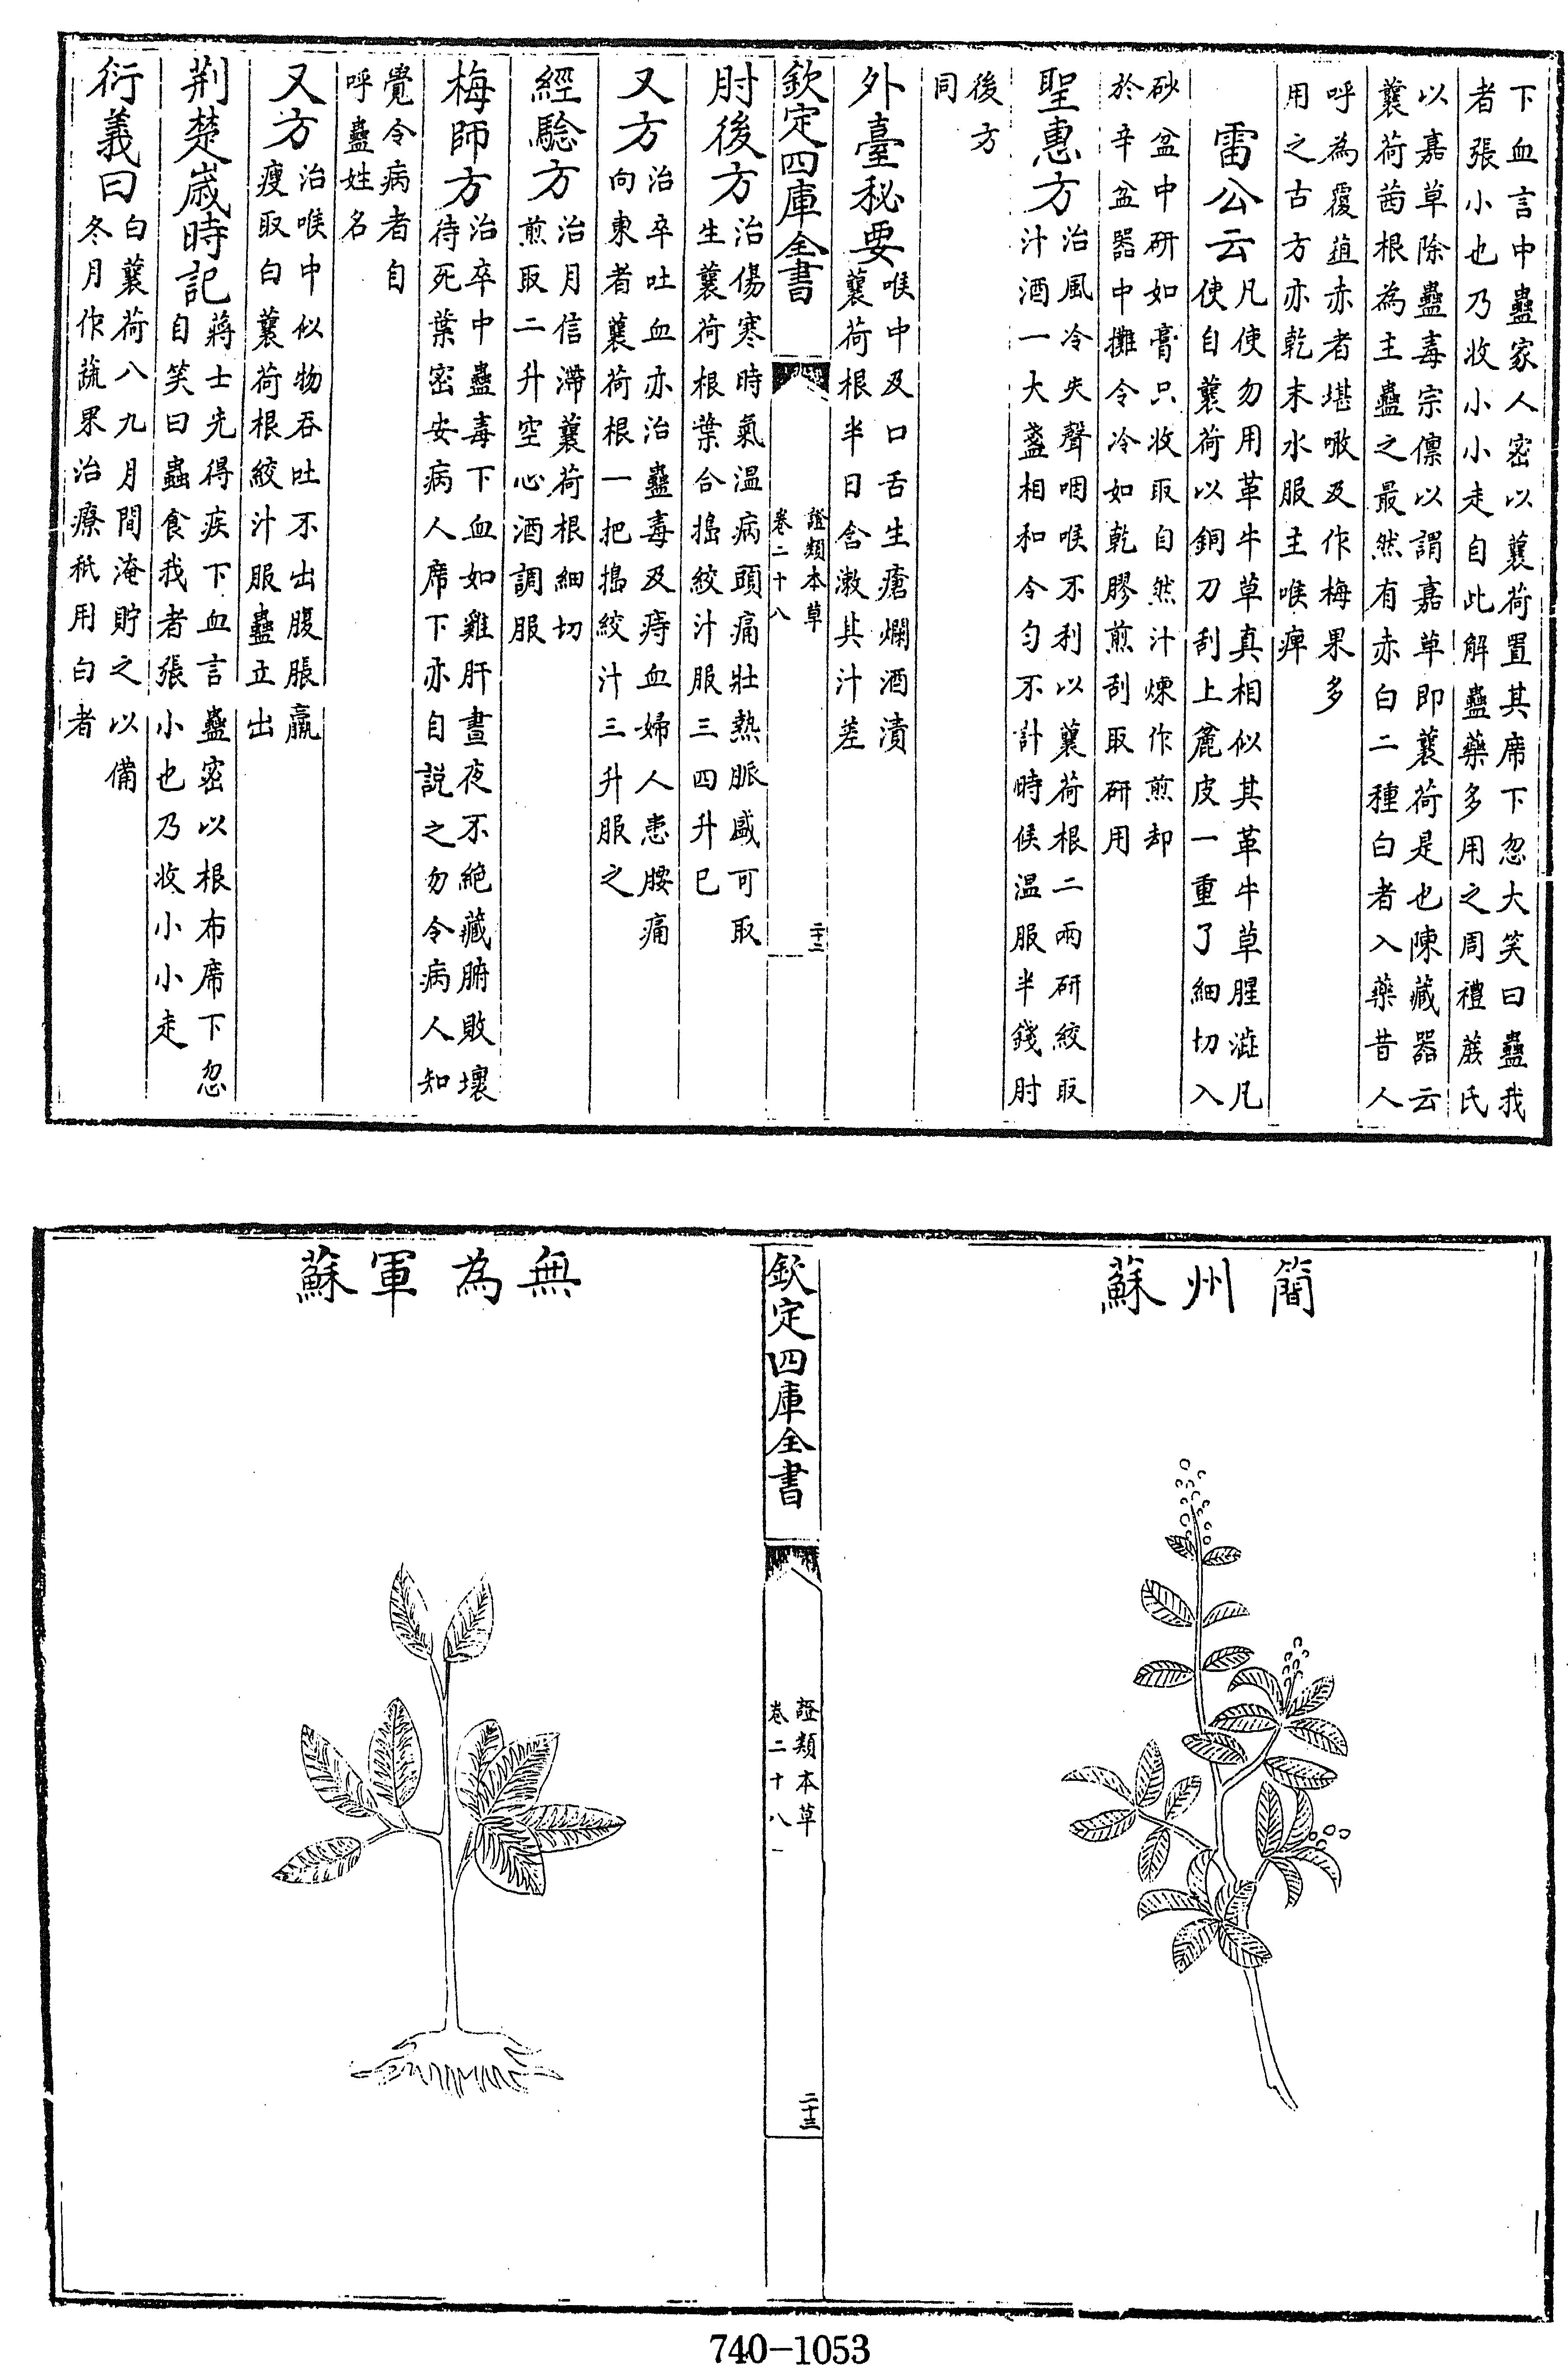 下血言中蠱家人密以蘘荷置其席下忽大笑曰蠱我
者張小也乃收小小走自此解蠱藥多用之周禮蔟氏
以嘉草除蠱毒宗懍以謂嘉草即蘘荷是也陳藏器云
蘘荷茜根為主蠱之最然有赤白二種白者入藥昔人
呼為覆葅赤者堪噉及作梅果多
用之古方亦乾末水服主喉痺
雷公云凡使勿用革牛草真相似其革牛草腥澁凡
使自蘘荷以銅刀刮上麄皮一重了細切入
砂盆中研如膏只收取自然汁煉作煎却
於辛盆器中攤令冷如乾膠煎刮取研用
聖惠方治風冷失聲咽喉不利以蘘荷根二兩研絞取
汁酒一大盞相和令勻不計時候温服半錢肘
後方
同
外臺秘要喉中及口舌生瘡爛酒漬
蘘荷根半日含漱其汁差
欽定四庫全書
證類本草
卷二十八
二十二
肘後方治傷寒時氣温病頭痛壯熱脈盛可取
生蘘荷根葉合搗絞汁服三四升已
又方治卒吐血亦治蠱毒及痔血婦人患腰痛
向東者蘘荷根一把搗絞汁三升服之
經驗方治月信滯蘘荷根細切
煎取二升空心酒調服
梅師方治卒中蠱毒下血如雞肝晝夜不絶藏腑敗壞
待死葉密安病人席下亦自説之勿令病人知
覺令病者自
呼蠱姓名
又方治喉中似物吞吐不出腹脹羸
瘦取白蘘荷根絞汁服蠱立出
荆楚嵗時記蔣士先得疾下血言蠱密以根布席下忽
自笑曰蟲食我者張小也乃收小小走
衍義曰白蘘荷八九月間淹貯之以備
冬月作蔬果治療秖用白者
簡州蘇
欽定四庫全書
證類本草
卷二十八
二十三
無為軍蘇
740-1053